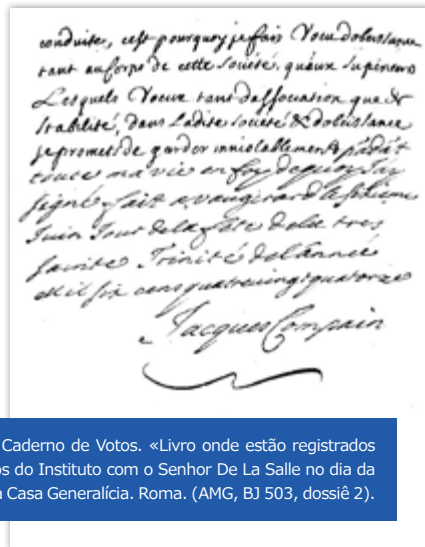 conduite, cest pourquoy je fais Voeu dobeissance
tant au Corps de cette Société, quaux Superieurs
Lesquels Voeux tant dassociation que de
stabilité, dans Ladite société & dobeissance
je promets de garder inviolablement pendant
toute ma vie en foy dequoy Jay
signé fait a vaugirard le sixieme
Juin Jour de la feste de la tres
sainte Trinité de Lannée
Mil six cens quatrevingt quatorze
Jacques Compain
Caderno de Votos. «Livro onde estão registrados
os do Instituto com o Senhor De La Salle no dia da
a Casa Generalícia. Roma. (AMG, BJ 503, dossiê 2).